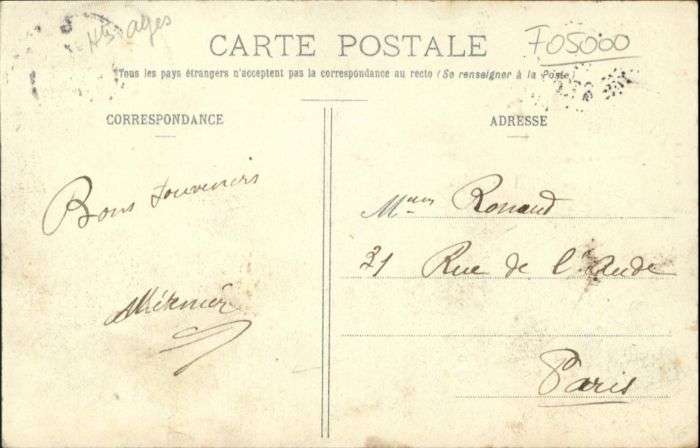 Htes alpes
F05000
CARTE POSTALE
Tous les pays étrangers n'acceptent pas la correspondance au recto (Se renseigner à la Poste)
CORRESPONDANCE
ADRESSE
Bons souvenirs
Ronaud
21 Rue de l'Aude
Paris